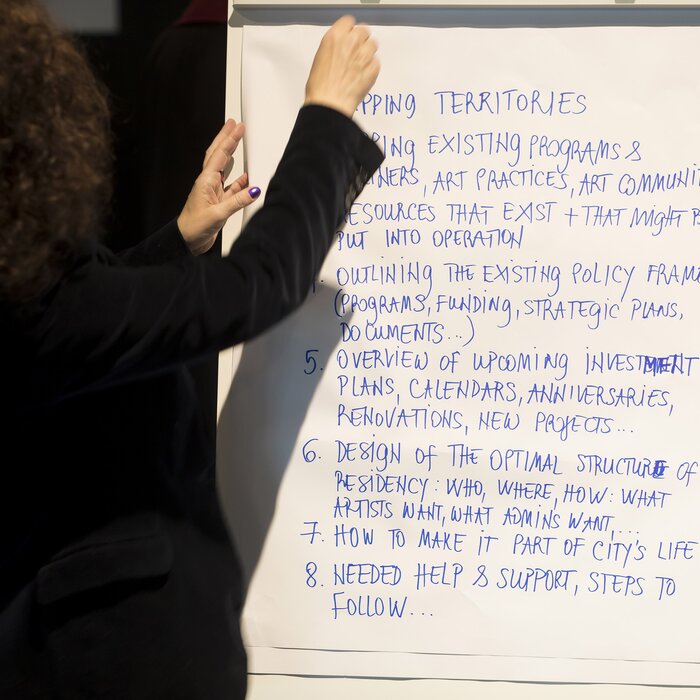 PPING TERRITORIES
RING EXISTING PROGRAMS &
NERS, ART PRACTICES, ART COMMUNIT
RESOURCES THAT EXIST + THAT MIGHT B
PUT INTO OPERATION
OUTLINING THE EXISTING POLICY FRAM
(PROGRAMS, FUNDING, STRATEGIC PLANS,
DOCUMENTS...)
5. OVERVIEW OF UPCOMING INVESTMENT
PLANS, CALENDARS, ANNIVERSARIES,
RENOVATIONS, NEW PROJECTS...
6. DESIGN OF THE OPTIMAL STRUCTURE OF
RESIDENCY: WHO, WHERE, HOW: WHAT
ARTISTS WANT, WHAT ADMINS WANT,...
7. HOW TO MAKE IT PART OF CITY'S LIFE
8. NEEDED HELP & SUPPORT, STEPS TO
FOLLOW...